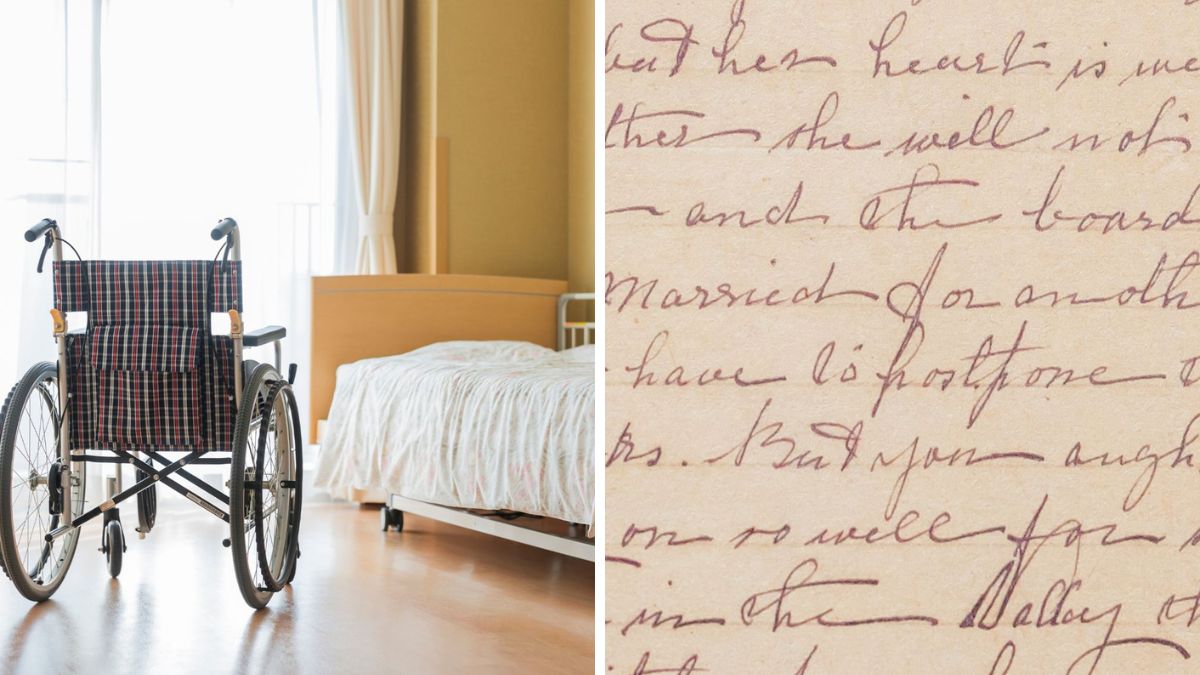 but her heart is we
ther she will not
— and the board
married for anoth
have to postpone t
rs. But you ough
on so well for
in the Valley th